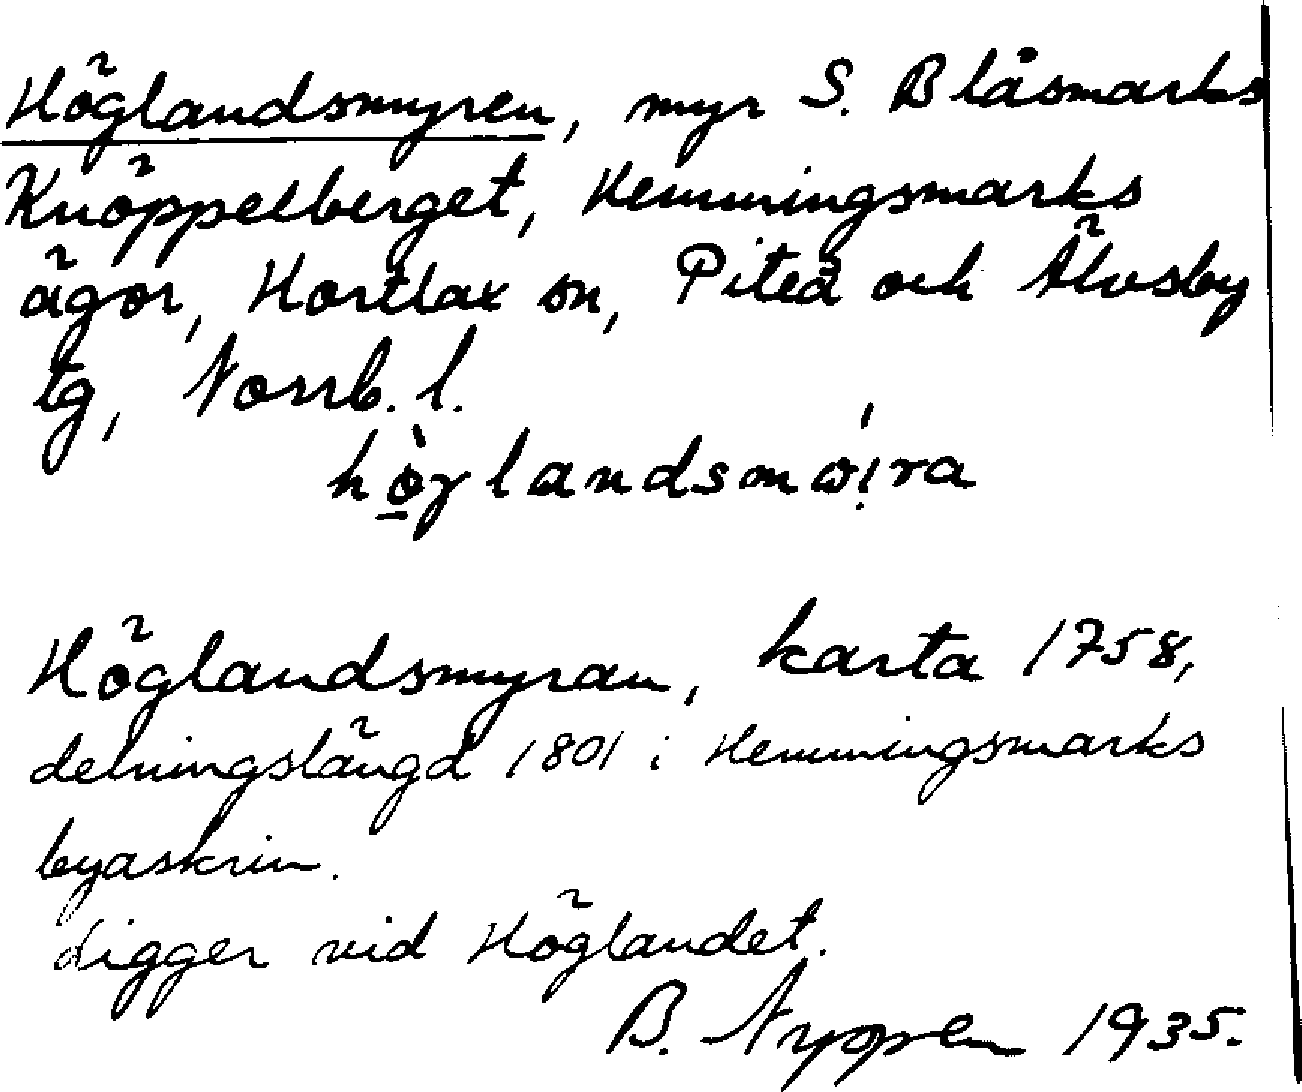 Höglandsmyren, myr S. Blåsmarks
Knöppelberget, Hemmingsmarks
ägor, Hortlax sn, Piteå och Älvsby
tg, Norrb. l.
hö̀glandsmøi̇́ra
Höglandsmyran, karta 1758,
delningslängd 1801 i Hemmingsmarks
byaskrin.
Ligger vid Höglandet.
B. Nyppen 1935.